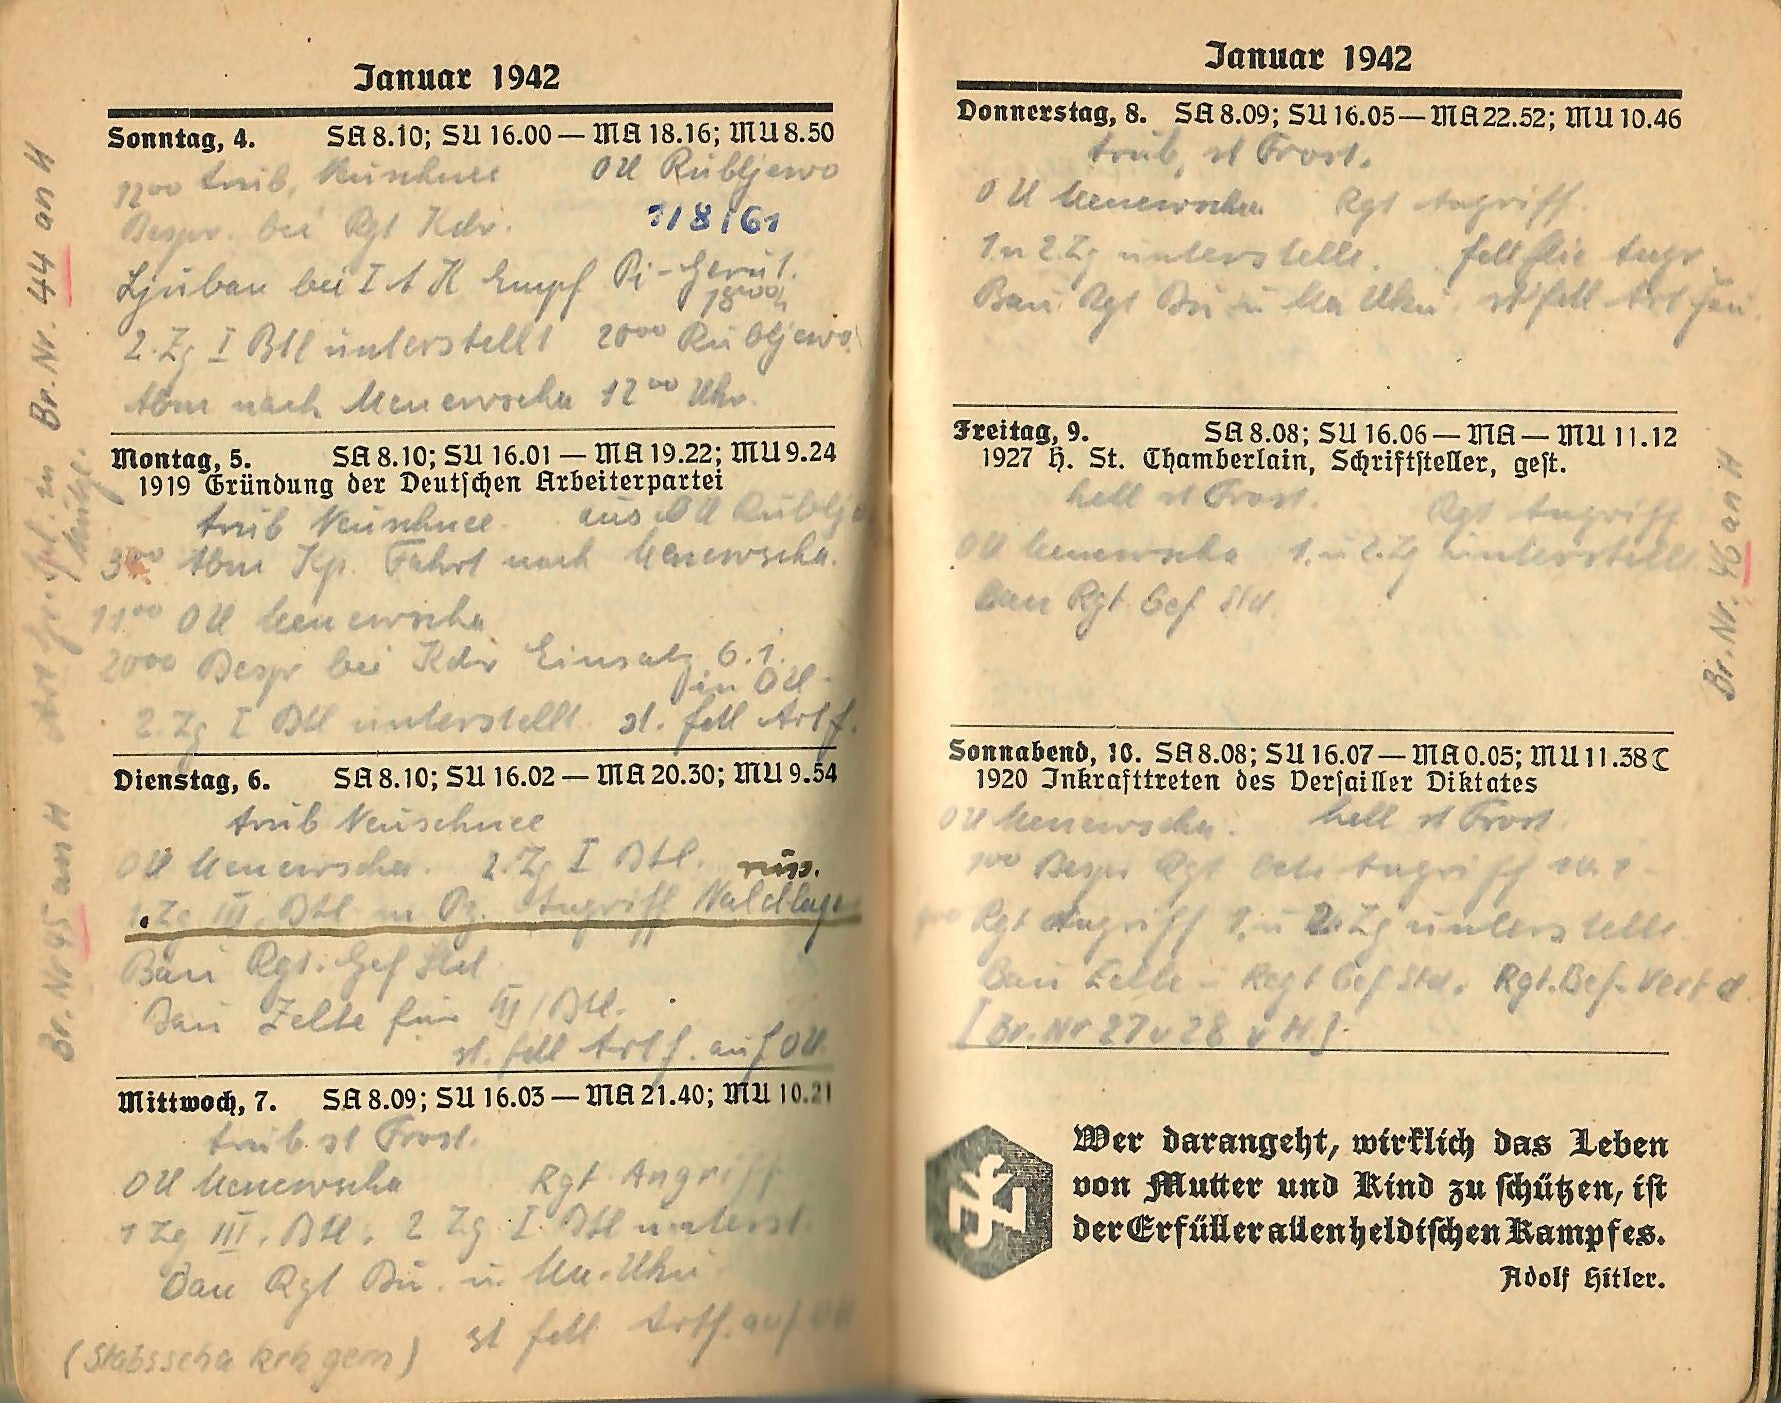 Januar 1942
Sonntag, 4. SA 8.10; SU 16.00 — MA 18.16; MU 8.50
12⁰⁰ trüb, Neuschnee OU Rubljewo
Bespr. bei Rgt Kdr. 1/8/61
Ljuban bei I A K Empf Pi-Gerät.
18⁰⁰h
2. Zg I Btl unterstellt 20⁰⁰ Rubljewo
Abm nach Menewscha 12⁰⁰ Uhr.
Montag, 5. SA 8.10; SU 16.01 — MA 19.22; MU 9.24
1919 Gründung der Deutschen Arbeiterpartei
trüb Neuschnee. aus OU Rublj
3⁰⁰ Abm Kp. Fahrt nach Menewscha.
11⁰⁰ OU Menewscha
20⁰⁰ Bespr bei Kdr Einsatz 6.1.
in OU.
2. Zg I Btl unterstellt. st. fdl Artf.
Dienstag, 6. SA 8.10; SU 16.02 — MA 20.30; MU 9.54
trüb Neuschnee
OU Menewscha. 2. Zg I Btl. russ.
1. Zg III. Btl m Pz. Angriff Waldlager
Bau Rgt. Gef Std
Bau Zelte für III/Btl.
st. fdl Artf. auf OU
Mittwoch, 7. SA 8.09; SU 16.03 — MA 21.40; MU 10.21
trüb. st Frost.
OU Menewscha Rgt Angriff
1 Zg III. Btl. 2 Zg I. Btl unterst.
Bau Rgt Bu. u.
st fdl Artf. auf OU
Br. Nr. 44 an H
Br. Nr 45 an H
Januar 1942
Donnerstag, 8. SA 8.09; SU 16.05 — MA 22.52; MU 10.46
trüb, st Frost.
OU Menewscha Rgt Angriff.
1 u 2. Zg unterstellt. fdl Angr.
Bau Rgt Bu u st fdl Art
Freitag, 9. SA 8.08; SU 16.06 — MA — MU 11.12
1927 H. St. Chamberlain, Schriftsteller, gest.
hell st Frost. Rgt Angriff
OU Menewscha 1. u 2. Zg unterstellt
Bau Rgt Gef Std.
Br. Nr. 46 an H
Sonnabend, 10. SA 8.08; SU 16.07 — MA 0.05; MU 11.38 ☾
1920 Inkrafttreten des Versailler Diktates
OU Menewscha. hell st Frost.
Bespr Rgt betr Angriff 10.1.
Rgt Angriff 1. u 2. Zg unterstellt.
Bau Zelte – Regt Gef Std. Rgt. Bef.
[Br. Nr 27 u 28 v H]
Wer darangeht, wirklich das Leben
von Mutter und Kind zu schützen, ist
der Erfüller allen heldischen Kampfes.
Adolf Hitler.